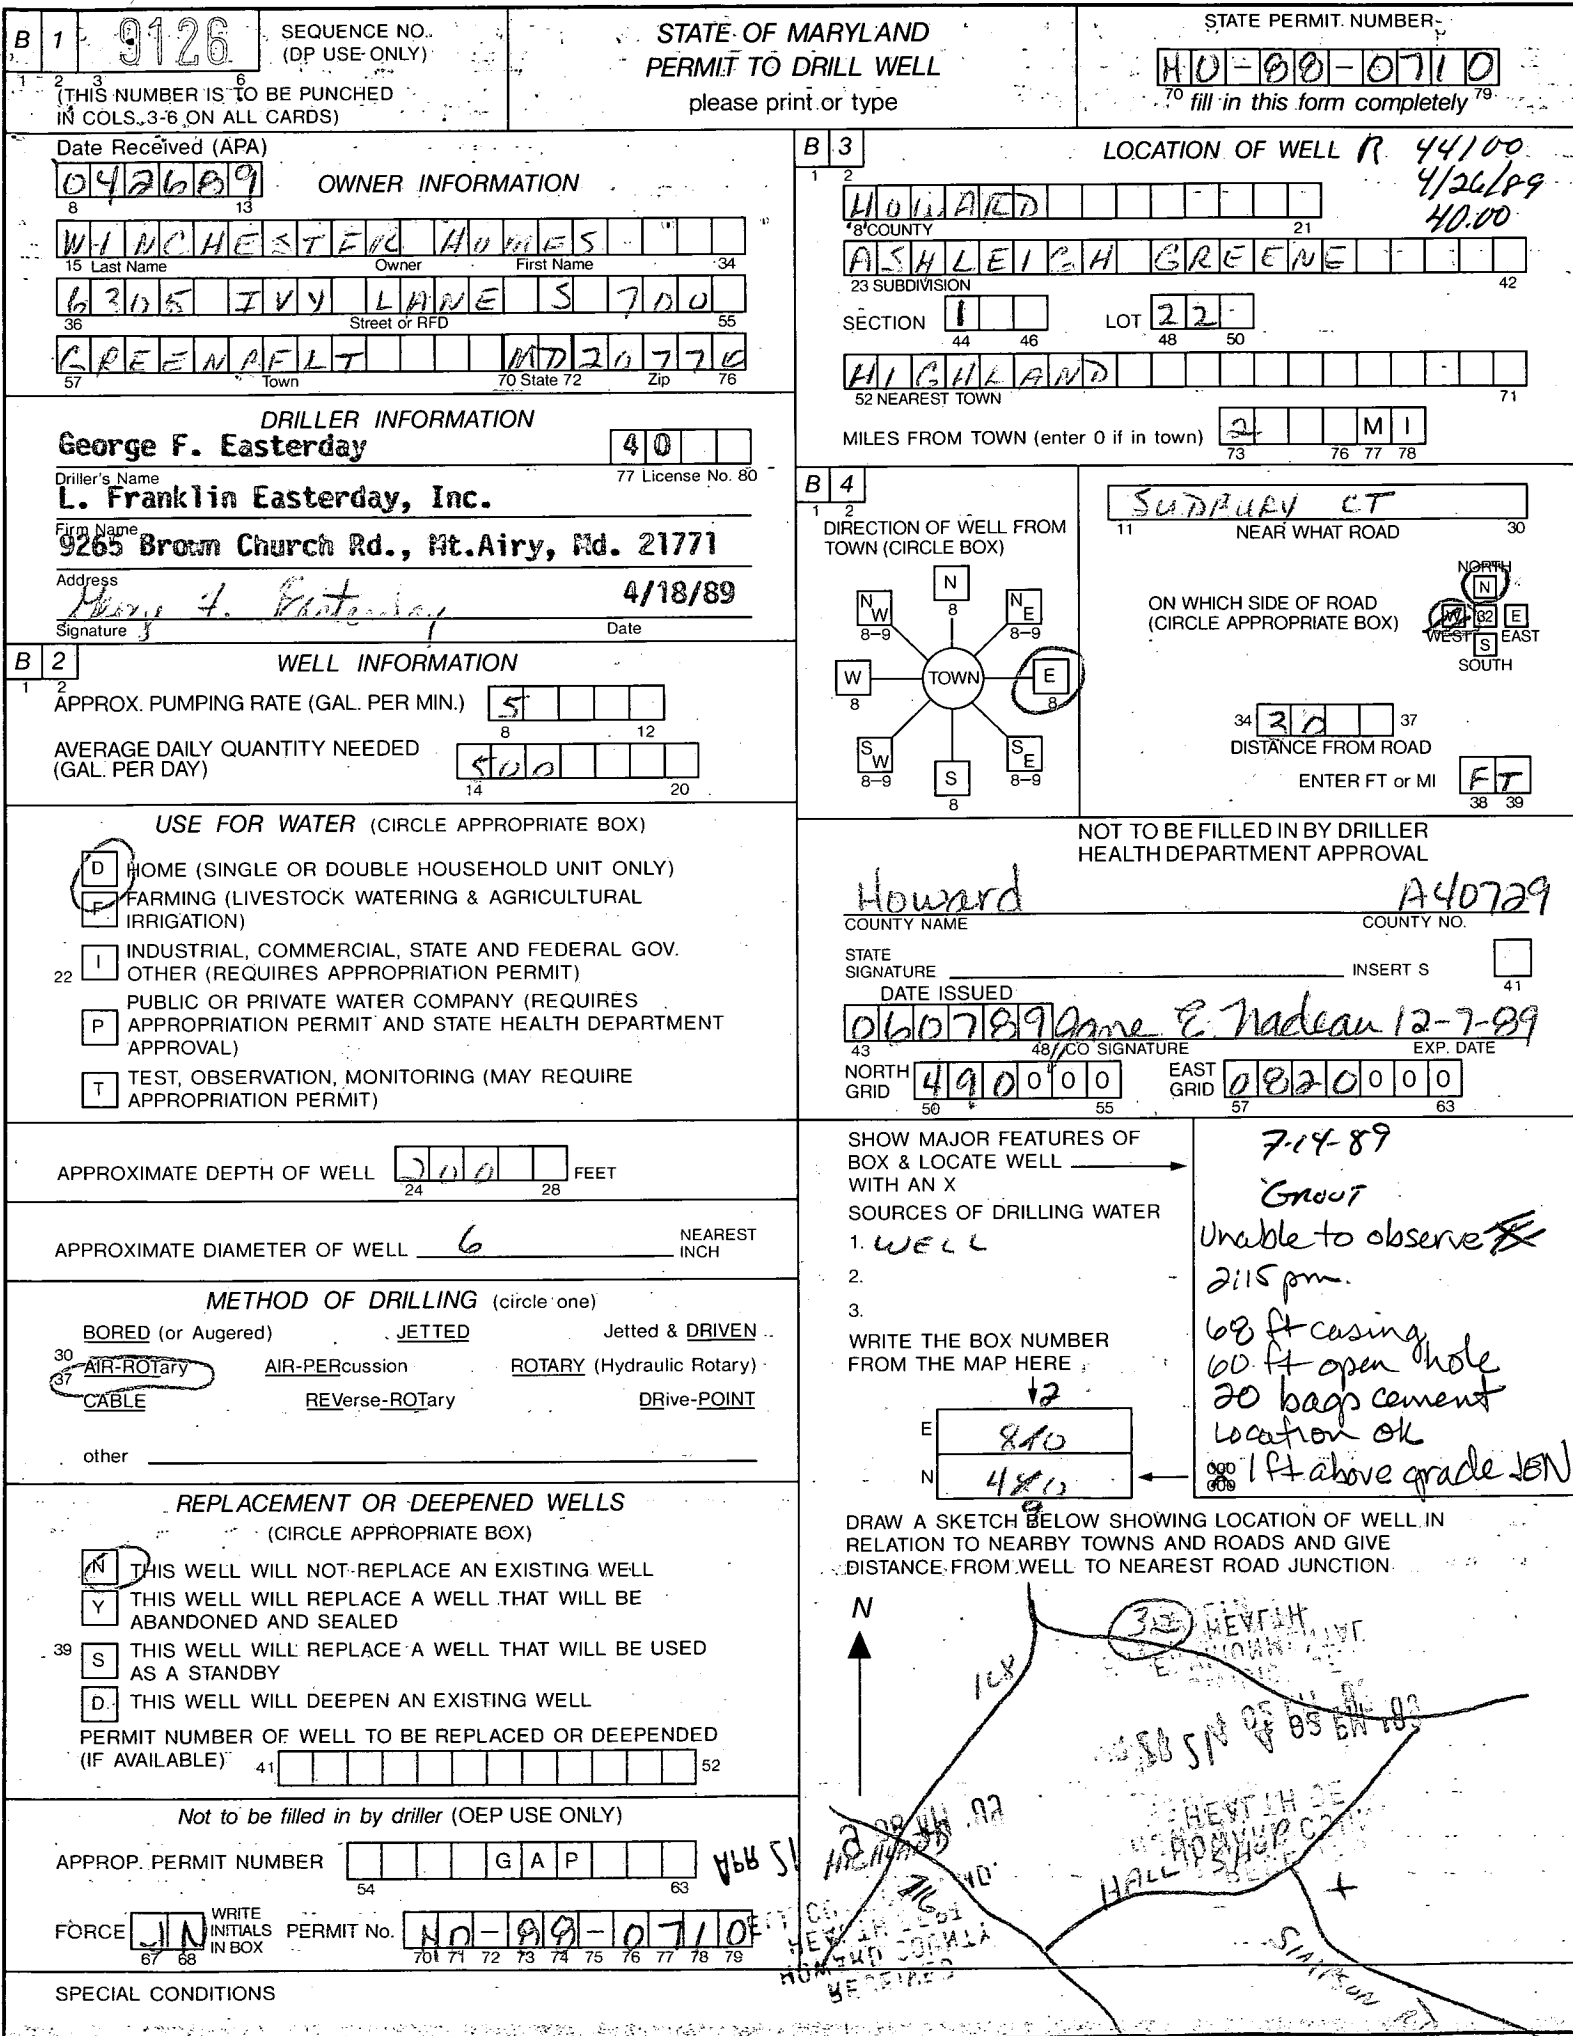 B 1 9126 SEQUENCE NO. (DP USE ONLY)
1 2 3 6
(THIS NUMBER IS TO BE PUNCHED
IN COLS. 3-6 ON ALL CARDS)
STATE OF MARYLAND
PERMIT TO DRILL WELL
please print or type
STATE PERMIT NUMBER
HO-88-0710
70 fill in this form completely 79
Date Received (APA)
042689
8 13
OWNER INFORMATION
WINCHESTER HOMES
15 Last Name Owner First Name 34
6305 IVY LANE S 700
36 Street or RFD 55
GREENBELT MD 20770
57 Town 70 State 72 Zip 76
DRILLER INFORMATION
George F. Easterday 40
Driller's Name 77 License No. 80
L. Franklin Easterday, Inc.
Firm Name
9265 Brown Church Rd., Mt.Airy, Md. 21771
Address
George F. Easterday 4/18/89
Signature Date
B 2 WELL INFORMATION
1 2
APPROX. PUMPING RATE (GAL. PER MIN.) 5
8 12
AVERAGE DAILY QUANTITY NEEDED
(GAL. PER DAY) 500
14 20
USE FOR WATER (CIRCLE APPROPRIATE BOX)
D HOME (SINGLE OR DOUBLE HOUSEHOLD UNIT ONLY)
F FARMING (LIVESTOCK WATERING & AGRICULTURAL
IRRIGATION)
22 I INDUSTRIAL, COMMERCIAL, STATE AND FEDERAL GOV.
OTHER (REQUIRES APPROPRIATION PERMIT)
P PUBLIC OR PRIVATE WATER COMPANY (REQUIRES
APPROPRIATION PERMIT AND STATE HEALTH DEPARTMENT
APPROVAL)
T TEST, OBSERVATION, MONITORING (MAY REQUIRE
APPROPRIATION PERMIT)
APPROXIMATE DEPTH OF WELL 200 FEET
24 28
APPROXIMATE DIAMETER OF WELL 6 NEAREST
INCH
METHOD OF DRILLING (circle one)
BORED (or Augered) JETTED Jetted & DRIVEN
30 AIR-ROTary AIR-PERcussion ROTARY (Hydraulic Rotary)
37 CABLE REVerse-ROTary DRive-POINT
other
REPLACEMENT OR DEEPENED WELLS
(CIRCLE APPROPRIATE BOX)
N THIS WELL WILL NOT REPLACE AN EXISTING WELL
Y THIS WELL WILL REPLACE A WELL THAT WILL BE
ABANDONED AND SEALED
39 S THIS WELL WILL REPLACE A WELL THAT WILL BE USED
AS A STANDBY
D THIS WELL WILL DEEPEN AN EXISTING WELL
PERMIT NUMBER OF WELL TO BE REPLACED OR DEEPENDED
(IF AVAILABLE) 41 52
Not to be filled in by driller (OEP USE ONLY)
APPROP. PERMIT NUMBER G A P
54 63
FORCE JN WRITE INITIALS IN BOX PERMIT No. HO-88-0710
67 68 70 71 72 73 74 75 76 77 78 79
SPECIAL CONDITIONS
B 3 LOCATION OF WELL R 44100
1 2 4/26/89
40.00
HOWARD
8 COUNTY 21
ASHLEIGH GREENE
23 SUBDIVISION 42
SECTION 1 LOT 22
44 46 48 50
HIGHLAND
52 NEAREST TOWN 71
MILES FROM TOWN (enter 0 if in town) 2 M I
73 76 77 78
B 4
1 2
DIRECTION OF WELL FROM
TOWN (CIRCLE BOX)
N
8
NW
8-9
NE
8-9
W
8
TOWN
E
8
SW
8-9
SE
8-9
S
8
SUDBURY CT
11 NEAR WHAT ROAD 30
ON WHICH SIDE OF ROAD
(CIRCLE APPROPRIATE BOX)
NORTH
N
W 32 E
WEST EAST
S
SOUTH
34 20 37
DISTANCE FROM ROAD
ENTER FT or MI FT
38 39
NOT TO BE FILLED IN BY DRILLER
HEALTH DEPARTMENT APPROVAL
Howard A40729
COUNTY NAME COUNTY NO.
STATE
SIGNATURE INSERT S
41
DATE ISSUED
060789 Jane E. Nadeau 12-7-89
43 48 CO SIGNATURE EXP. DATE
NORTH GRID 490000 EAST GRID 0820000
50 55 57 63
SHOW MAJOR FEATURES OF
BOX & LOCATE WELL
WITH AN X
SOURCES OF DRILLING WATER
1. WELL
2.
3.
WRITE THE BOX NUMBER
FROM THE MAP HERE
2
E 810
N 480
9
7-14-89
GROUT
Unable to observe
2:15 pm.
68 ft casing
60 ft open hole
20 bags cement
Location ok
1 ft above grade JEN
DRAW A SKETCH BELOW SHOWING LOCATION OF WELL IN
RELATION TO NEARBY TOWNS AND ROADS AND GIVE
DISTANCE FROM WELL TO NEAREST ROAD JUNCTION
N
108
32
HIGHLAND
216
HALL SHOP
SIMPSON RD